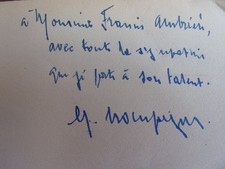 à Monsieur Francis Ambrière,
avec toute la sympathie
que je porte à son talent.